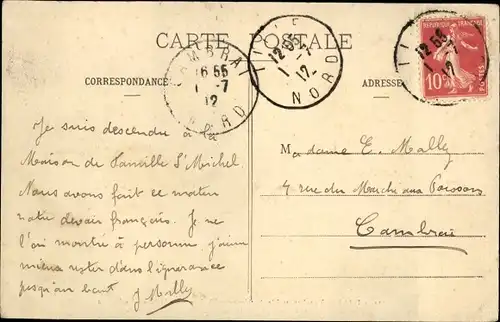 CARTE POSTALE
CORRESPONDANCE
ADRESSE
CAMBRAI
16 55
1 -7
12
NORD
LILLE
12 55
1 -7
12
NORD
REPUBLIQUE FRANCAISE
10c
POSTES
Je suis descendu à la
Maison de famille St Michel.
Nous avons fait ce matin
notre devoir français. Je ne
l'ai montré à personne j'aime
mieux rester dans l'ignorance
jusqu'au bout J. Mally
Madame E. Mally
4 rue du Marché aux Poissons
Cambrai